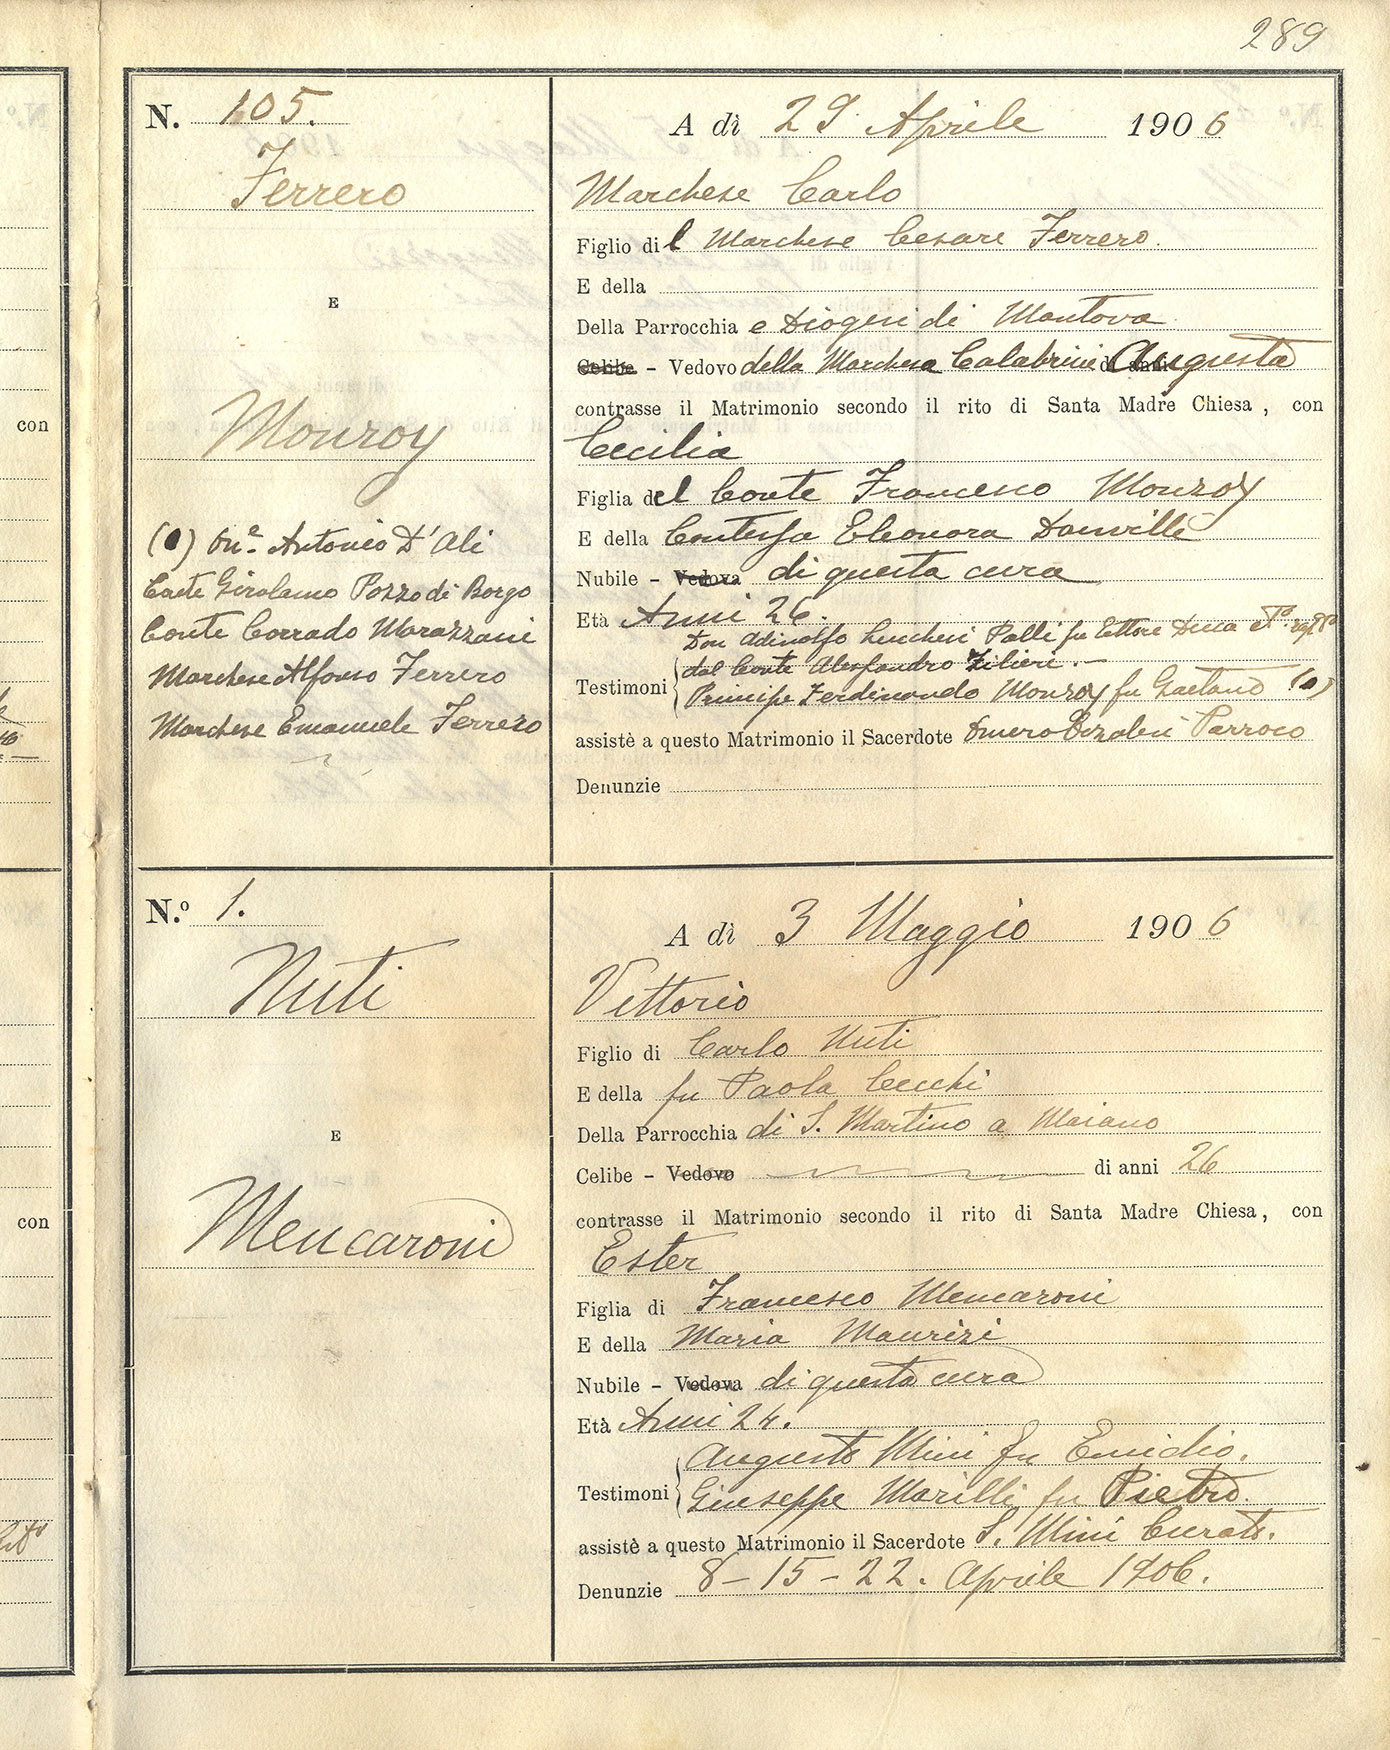 289
N. 105.
Ferrero
E
Monroy
(a) On.e Antonio D'Ali
Conte Girolamo Pozzo di Borgo
Conte Corrado Marazzani
Marchese Alfonso Ferrero
Marchese Emanuele Ferrero
A dì 29 Aprile 1906
Marchese Carlo
Figlio del Marchese Cesare Ferrero.
E della
Della Parrocchia e Diogesi di Mantova
Celibe - Vedovo della Marchesa Calabrini di anni Augusta
contrasse il Matrimonio secondo il rito di Santa Madre Chiesa, con
Cecilia
Figlia del Conte Francesco Monroy
E della Contessa Eleonora Danville
Nubile - Vedova di questa cura
Età Anni 26.
Don Adinolfo Lucchesi Palli fu Ettore Duca
dal Conte Alessandro Zilieri.
Testimoni Principe Ferdinando Monroy fu Gaetano (a)
assistè a questo Matrimonio il Sacerdote Parroco
Denunzie
con
N.o 1.
Nuti
E
Mencaroni
A dì 3 Maggio 1906
Vittorio
Figlio di Carlo Nuti
E della fu Paola Cecchi
Della Parrocchia di S. Martino a Maiano
Celibe - Vedovo di anni 26
contrasse il Matrimonio secondo il rito di Santa Madre Chiesa, con
Ester
Figlia di Francesco Mencaroni
E della Maria Maurizi
Nubile - Vedova di questa cura
Età Anni 24.
Augusto Mini fu Emidio.
Testimoni Giuseppe Marilli fu Pietro.
assistè a questo Matrimonio il Sacerdote S. Mini Curato.
Denunzie 8-15-22. Aprile 1906.
con